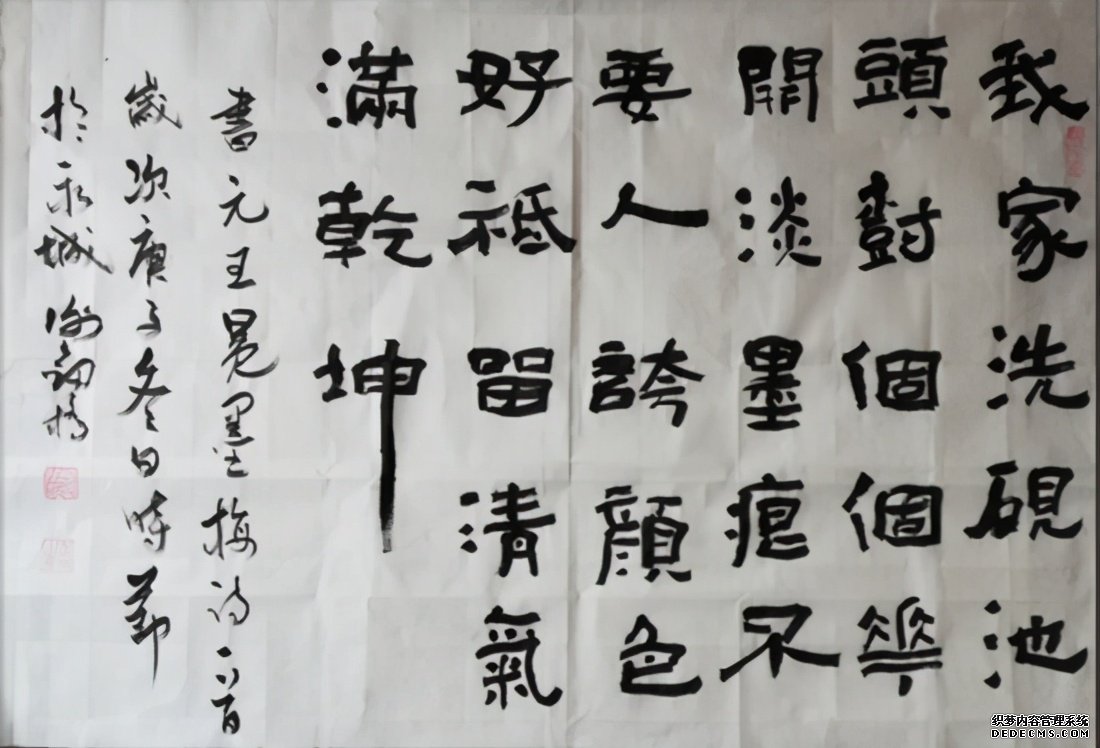 我家洗硯池
頭對個個華
開淡墨痕不
要人誇顏色
好祗留清氣
滿乾坤
書元王冕墨梅詩一首
歲次庚子冬日時節
於永城
织梦内容管理系统
DEDECMS.COM